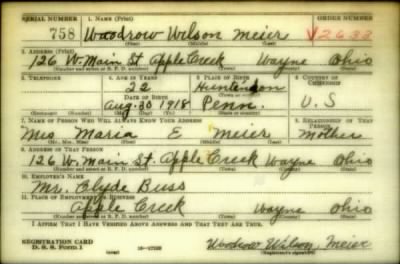 SERIAL NUMBER 1. NAME (Print) ORDER NUMBER
758 Woodrow Wilson Meier V2633
(First) (Middle) (Last)
2. ADDRESS (Print)
126 W. Main St. Apple Creek Wayne Ohio
(Number and street or R. F. D. number) (Town) (County) (State)
3. TELEPHONE 4. AGE IN YEARS 5. PLACE OF BIRTH 6. COUNTRY OF CITIZENSHIP
22 Huntendon
DATE OF BIRTH (Town or county)
Aug. 30 1918 Penn. U.S
(Exchange) (Number) (Mo.) (Day) (Yr.) (State or country)
7. NAME OF PERSON WHO WILL ALWAYS KNOW YOUR ADDRESS 8. RELATIONSHIP OF THAT PERSON
Mrs Maria E Meier Mother
(Mr., Mrs., Miss) (First) (Middle) (Last)
9. ADDRESS OF THAT PERSON
126 W. Main St. Apple Creek Wayne Ohio
(Number and street or R. F. D. number) (Town) (County) (State)
10. EMPLOYER'S NAME
Mr. Clyde Buss
11. PLACE OF EMPLOYMENT OR BUSINESS
Apple Creek Wayne Ohio
(Number and street or R. F. D. number) (Town) (County) (State)
I AFFIRM THAT I HAVE VERIFIED ABOVE ANSWERS AND THAT THEY ARE TRUE.
REGISTRATION CARD
D. S. S. Form 1 Woodrow Wilson Meier
(Registrant's signature)